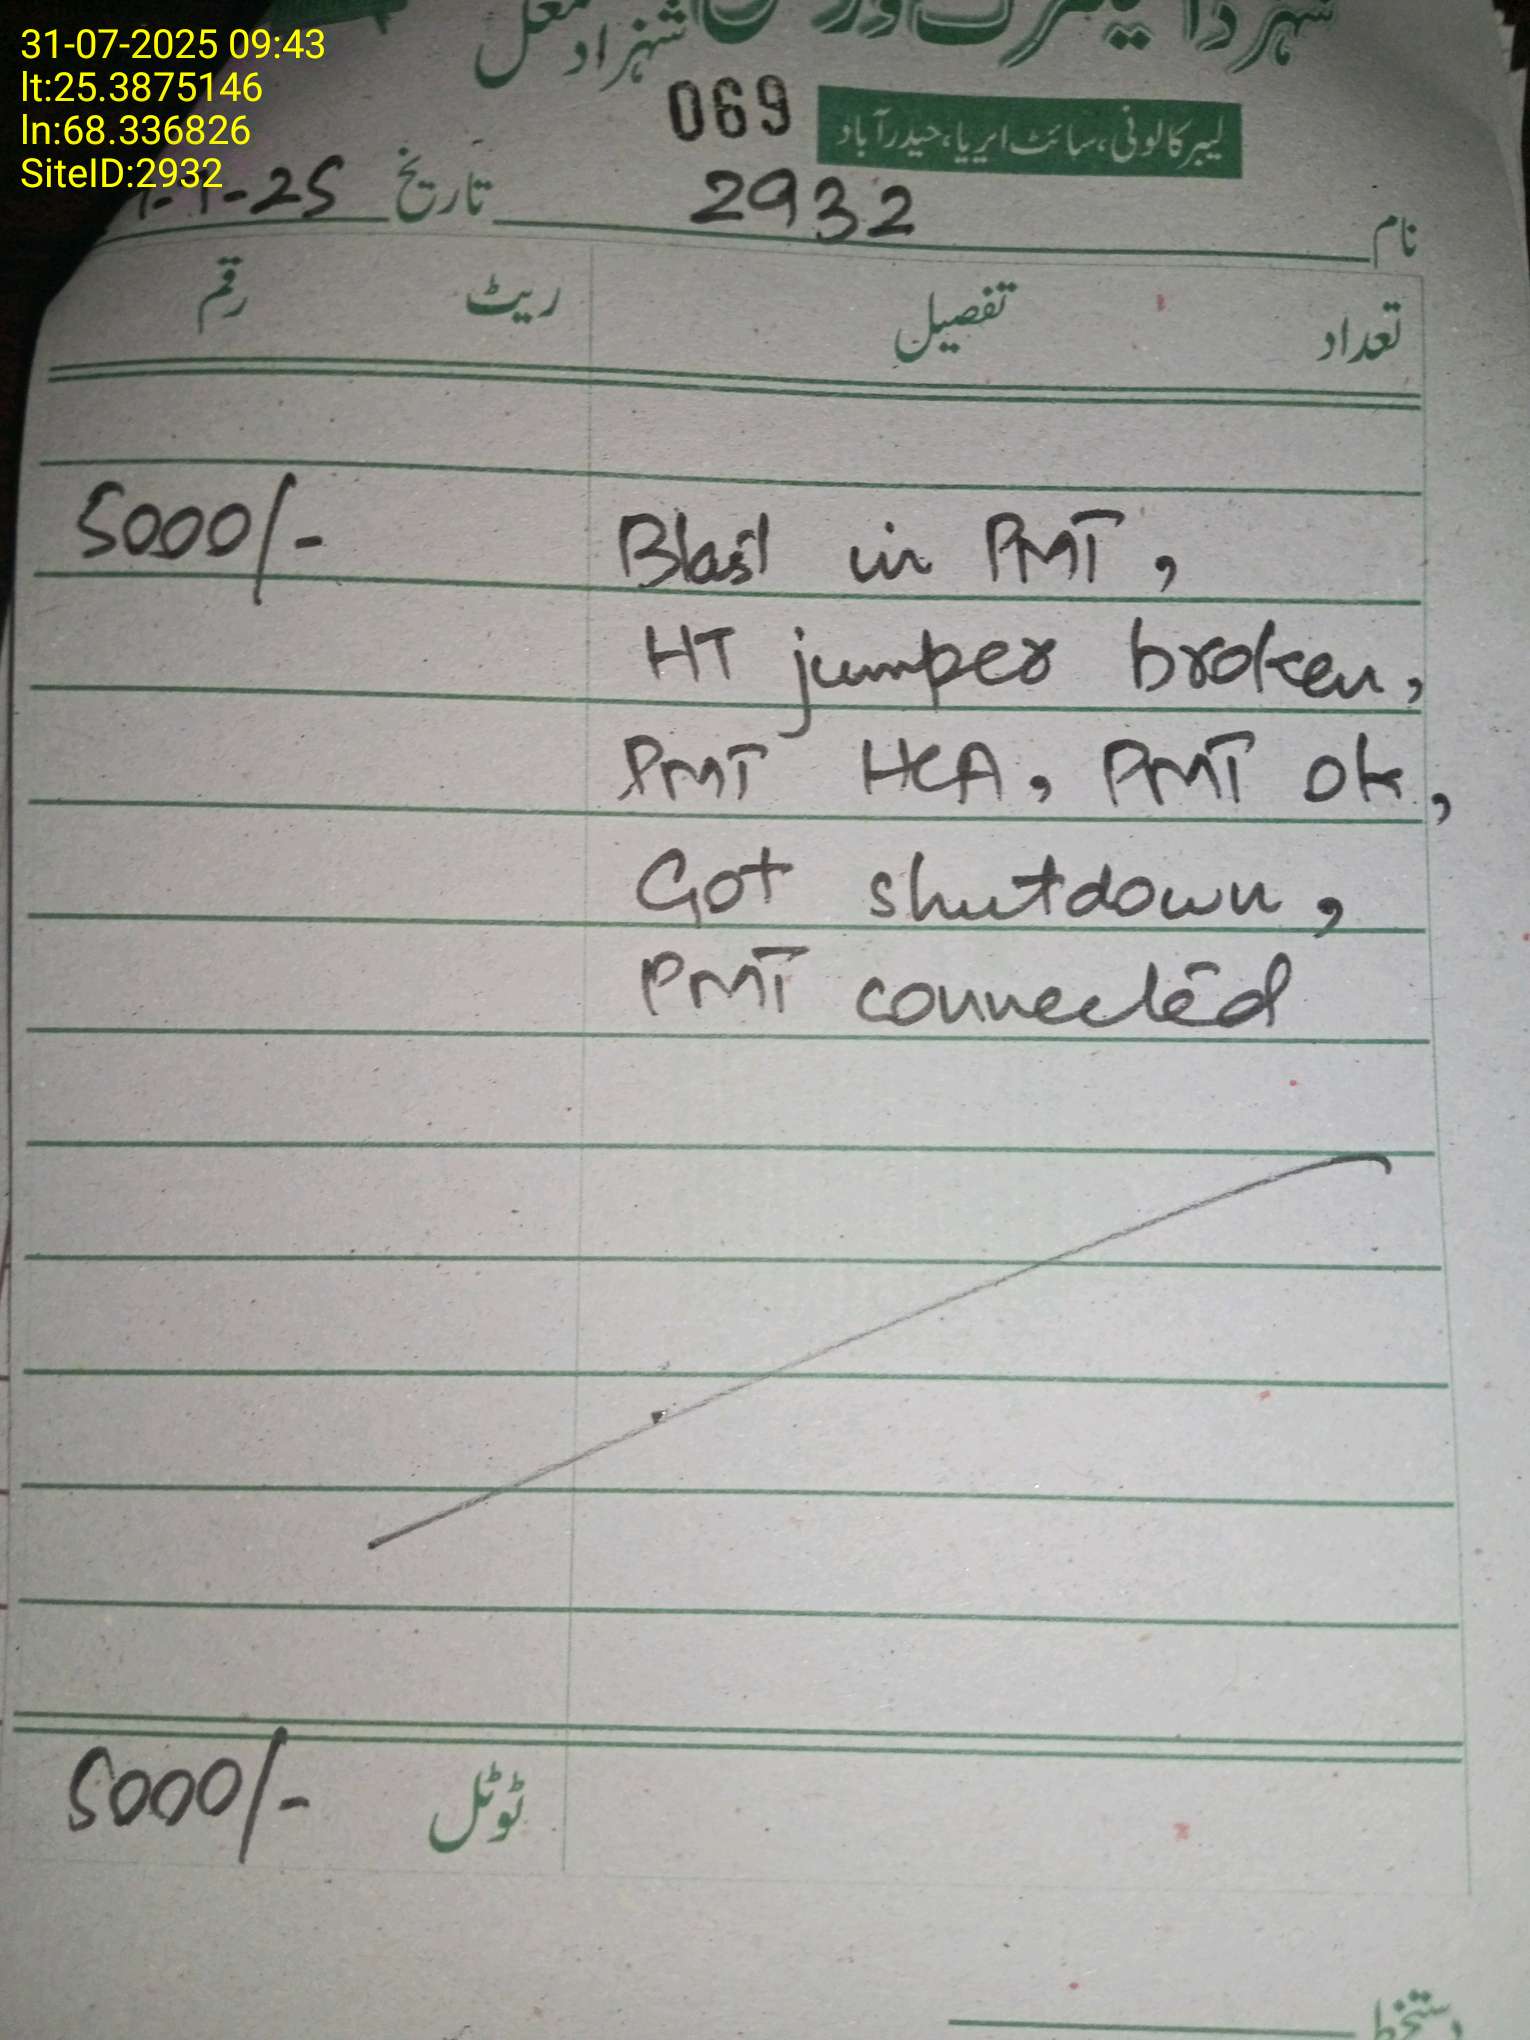 31-07-2025 09:43
lt:25.3875146
ln:68.336826
SiteID:2932
شہزاد
069
لیبر کالونی، سائٹ ایریا، حیدرآباد
نام 2932 تاریخ
تعداد تفصیل ریٹ رقم
Blast in PMT, 5000/-
HT jumper broken,
PMT HCA, PMT ok,
Got shutdown,
PMT connected
ٹوٹل 5000/-
دستخط